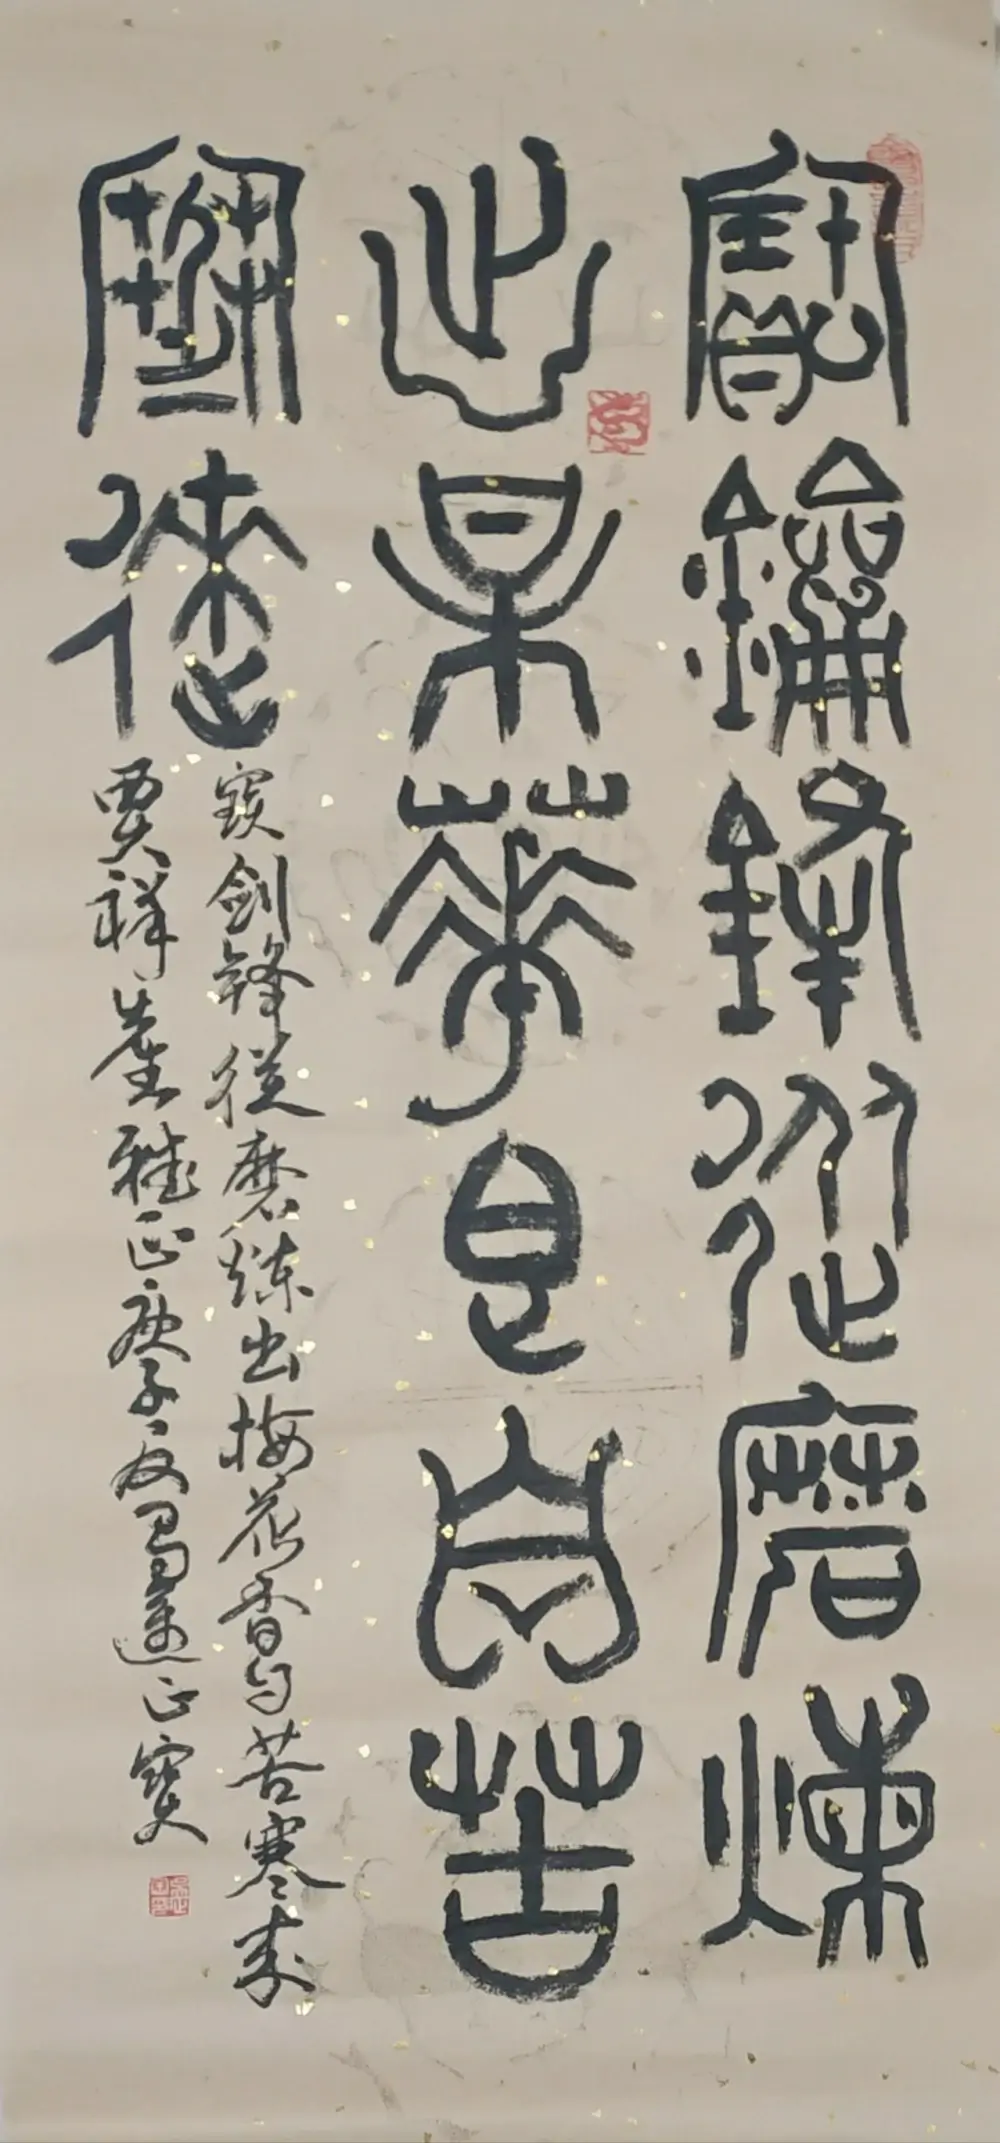 寶劍鋒從磨煉
出梅華香自苦
寒徠
寶劍鋒從磨煉出梅花香自苦寒來
賈祥先生雅正庚子夏蜀遠正寶